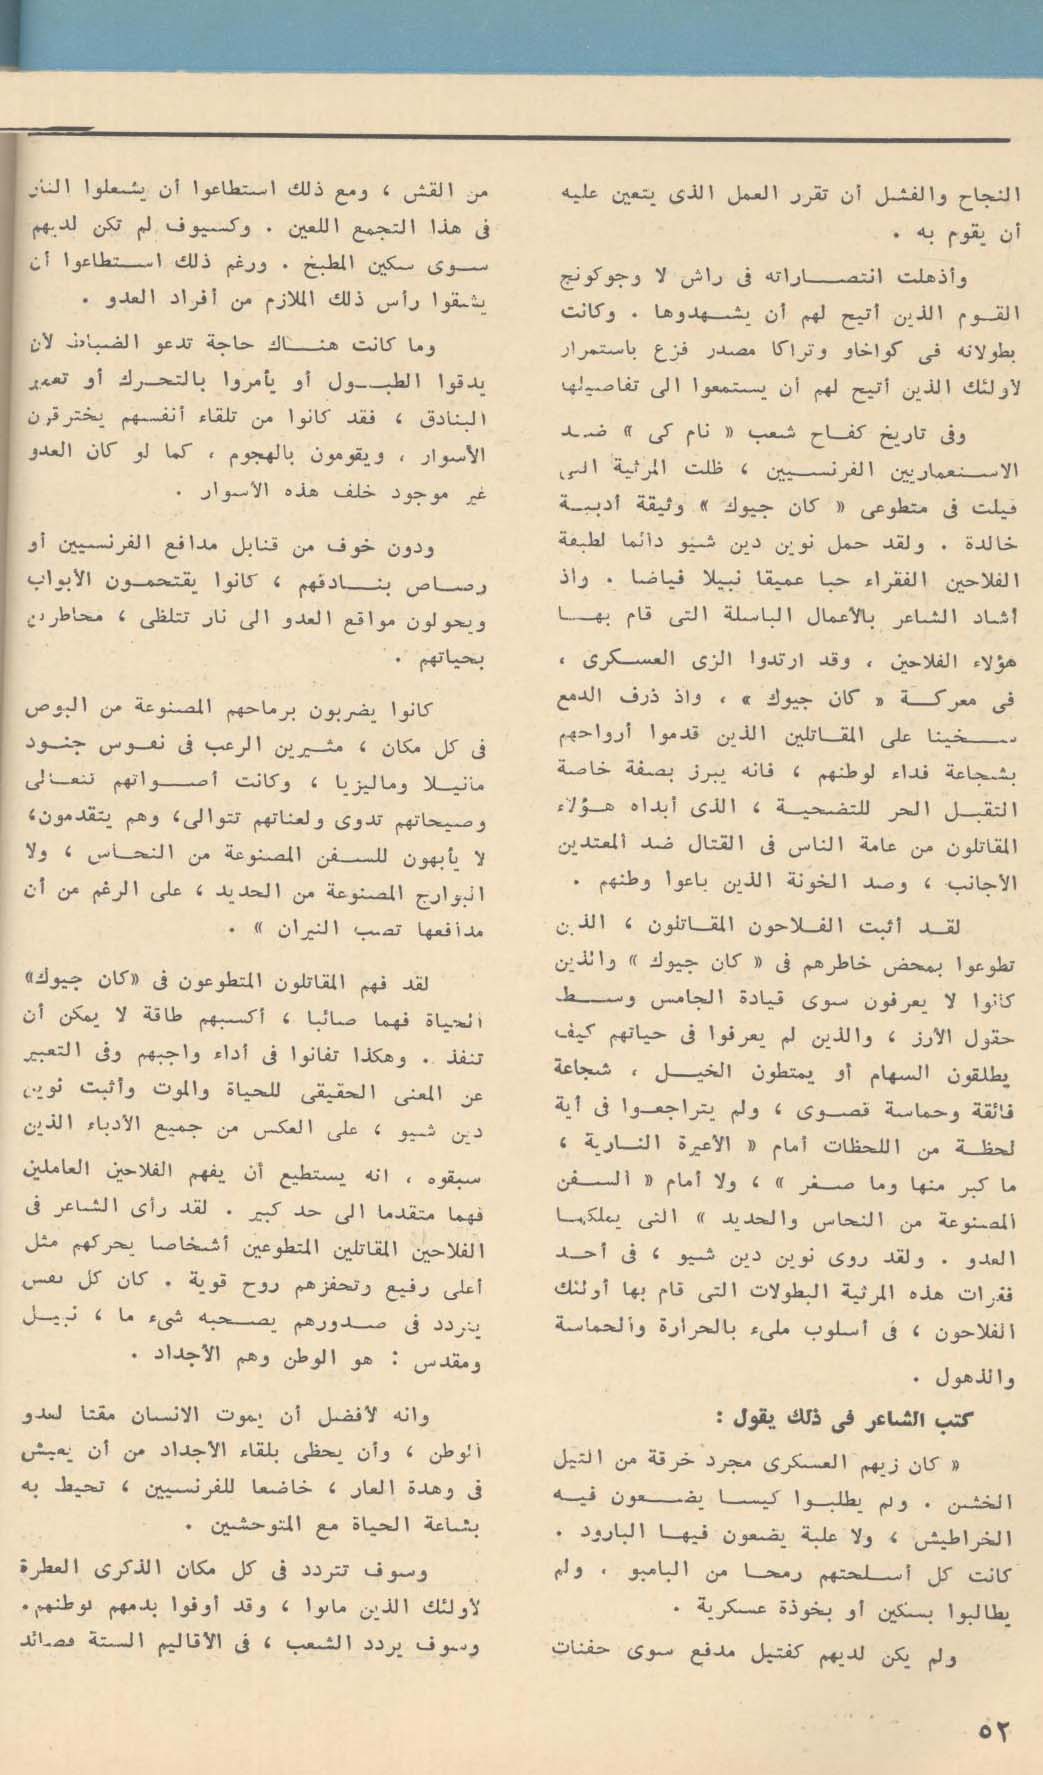 النجاح والفشل أن تقرر العمل الذى يتعين عليه
أن يقوم به .
وأذهلت انتصاراته فى راش لا وجوكونج
القوم الذين أتيح لهم أن يشهدوها . وكانت
بطولاته فى كواخاو وتراكا مصدر فزع باستمرار
لأولئك الذين أتيح لهم أن يستمعوا الى تفاصيلها
وفى تاريخ كفاح شعب « نام كى » ضد
الاستعماريين الفرنسيين ، ظلت المرثية التى
قيلت فى متطوعى « كان جيوك » وثيقة أدبية
خالدة . ولقد حمل نوين دين شيو دائما لطبقة
الفلاحين الفقراء حبا عميقا نبيلا فياضا . واذ
أشاد الشاعر بالأعمال الباسلة التى قام بها
هؤلاء الفلاحين ، وقد ارتدوا الزى العسكرى ،
فى معركة « كان جيوك » ، واذ ذرف الدمع
سخينا على المقاتلين الذين قدموا أرواحهم
بشجاعة فداء لوطنهم ، فانه يبرز بصفة خاصة
التقبل الحر للتضحية ، الذى أبداه هؤلاء
المقاتلون من عامة الناس فى القتال ضد المعتدين
الأجانب ، وضد الخونة الذين باعوا وطنهم .
لقد أثبت الفلاحون المقاتلون ، الذين
تطوعوا بمحض خاطرهم فى « كان جيوك » والذين
كانوا لا يعرفون سوى قيادة الجامس وسط
حقول الأرز ، والذين لم يعرفوا فى حياتهم كيف
يطلقون السهام أو يمتطون الخيل ، شجاعة
فائقة وحماسة قصوى ، ولم يتراجعوا فى أية
لحظة من اللحظات أمام « الأعيرة النارية ،
ما كبر منها وما صغر » ، ولا أمام « السفن
المصنوعة من النحاس والحديد » التى يملكها
العدو . ولقد روى نوين دين شيو ، فى أحد
فقرات هذه المرثية البطولات التى قام بها أولئك
الفلاحون ، فى أسلوب ملىء بالحرارة والحماسة
والذهول .
كتب الشاعر فى ذلك يقول :
« كان زيهم العسكرى مجرد خرقة من التيل
الخشن . ولم يطلبوا كيسا يضعون فيه
الخراطيش ، ولا علبة يضعون فيها البارود .
كانت كل أسلحتهم رمحا من البامبو . ولم
يطالبوا بسكين أو بخوذة عسكرية .
ولم يكن لديهم كفتيل مدفع سوى حفنات
من القش ، ومع ذلك استطاعوا أن يشعلوا النار
فى هذا التجمع اللعين . وكسيوف لم تكن لديهم
سوى سكين المطبخ . ورغم ذلك استطاعوا أن
يشقوا رأس ذلك الملازم من أفراد العدو .
وما كانت هناك حاجة تدعو الضباط لأن
يدقوا الطبول أو يأمروا بالتحرك أو تعمير
البنادق ، فقد كانوا من تلقاء أنفسهم يخترقون
الأسوار ، ويقومون بالهجوم ، كما لو كان العدو
غير موجود خلف هذه الأسوار .
ودون خوف من قنابل مدافع الفرنسيين أو
رصاص بنادقهم ، كانوا يقتحمون الأبواب
ويحولون مواقع العدو الى نار تتلظى ، مخاطرين
بحياتهم .
كانوا يضربون برماحهم المصنوعة من البوص
فى كل مكان ، مثيرين الرعب فى نفوس جنود
مانيلا وماليزيا ، وكانت أصواتهم تتعالى
وصيحاتهم تدوى ولعناتهم تتوالى، وهم يتقدمون،
لا يأبهون للسفن المصنوعة من النحاس ، ولا
البوارج المصنوعة من الحديد ، على الرغم من أن
مدافعها تصب النيران » .
لقد فهم المقاتلون المتطوعون فى «كان جيوك»
الحياة فهما صائبا ، أكسبهم طاقة لا يمكن أن
تنفذ . وهكذا تفانوا فى أداء واجبهم وفى التعبير
عن المعنى الحقيقى للحياة والموت وأثبت نوين
دين شيو ، على العكس من جميع الأدباء الذين
سبقوه ، انه يستطيع أن يفهم الفلاحين العاملين
فهما متقدما الى حد كبير . لقد رأى الشاعر فى
الفلاحين المقاتلين المتطوعين أشخاصا يحركهم مثل
أعلى رفيع وتحفزهم روح قوية . كان كل نفس
يتردد فى صدورهم يصحبه شىء ما ، نبيل
ومقدس : هو الوطن وهم الأجداد .
وانه لأفضل أن يموت الانسان مقتا لعدو
الوطن ، وأن يحظى بلقاء الأجداد من أن يعيش
فى وهدة العار ، خاضعا للفرنسيين ، تحيط به
بشاعة الحياة مع المتوحشين .
وسوف تتردد فى كل مكان الذكرى العطرة
لأولئك الذين ماتوا ، وقد أوفوا بدمهم لوطنهم.
وسوف يردد الشعب ، فى الأقاليم الستة قصائد
٥٢